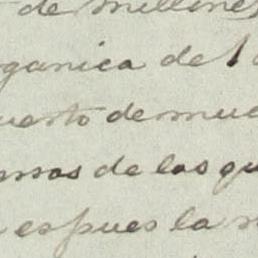 de millones
rganica del
uesto de mue
ensas de las qu
espues la